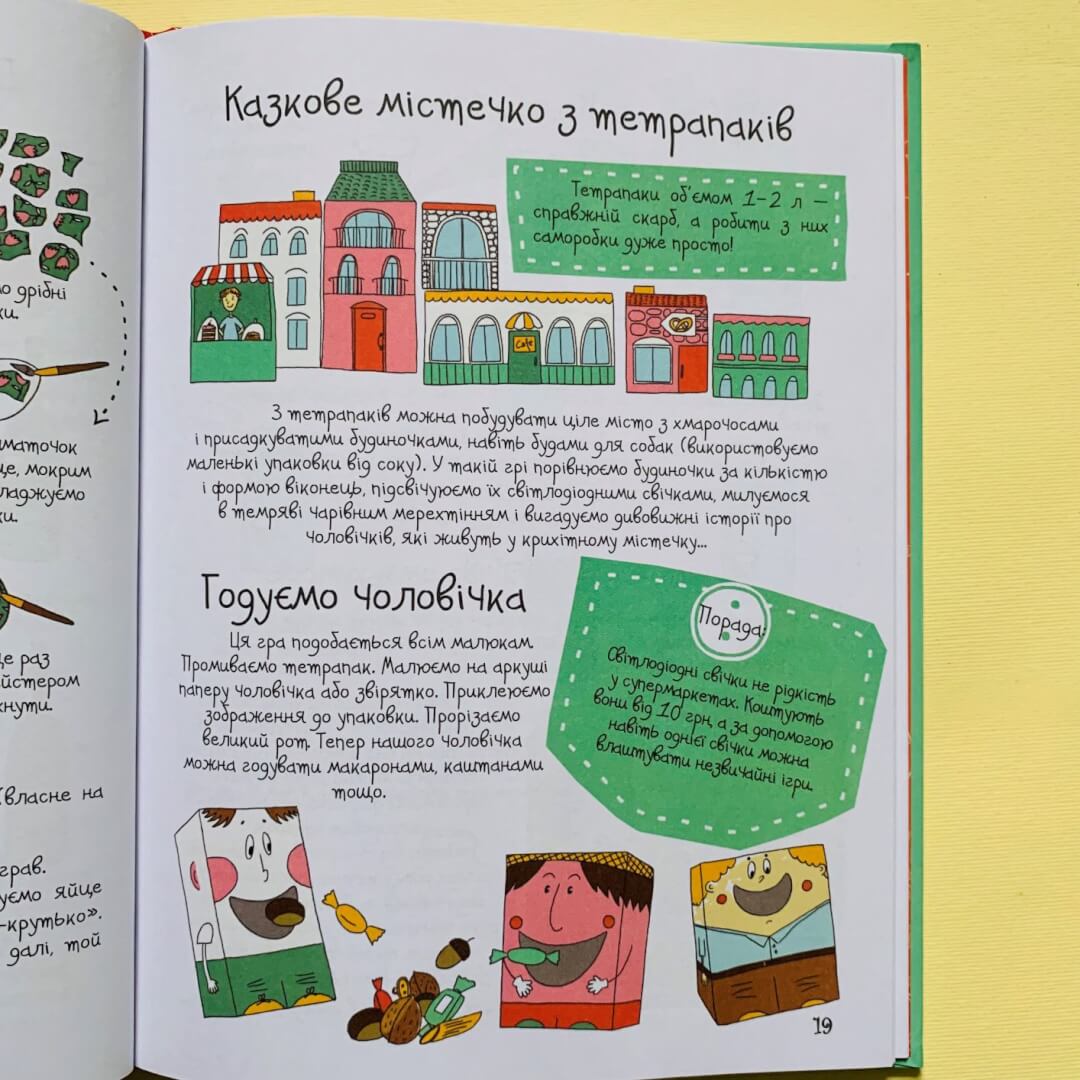 о дрібні
ки.
маточок
це, мокрим
ладжуємо
ки.
це раз
йстером
хнути.
власне на
грав.
уємо яйце
-крутько».
далі, той
Казкове містечко з тетрапаків
Тетрапаки об'ємом 1-2 л —
справжній скарб, а робити з них
саморобки дуже просто!
Cafe
З тетрапаків можна побудувати ціле місто з хмарочосами
і присадкуватими будиночками, навіть будами для собак (використовуємо
маленькі упаковки від соку). У такій грі порівнюємо будиночки за кількістю
і формою віконець, підсвічуємо їх світлодіодними свічками, милуємося
в темряві чарівним мерехтінням і вигадуємо дивовижні історії про
чоловічків, які живуть у крихітному містечку...
Годуємо чоловічка
Ця гра подобається всім малюкам.
Промиваємо тетрапак. Малюємо на аркуші
паперу чоловічка або звірятко. Приклеюємо
зображення до упаковки. Прорізаємо
великий рот. Тепер нашого чоловічка
можна годувати макаронами, каштанами
тощо.
Порада:
Світлодіодні свічки не рідкість
у супермаркетах. Коштують
вони від 10 грн, а за допомогою
навіть однієї свічки можна
влаштувати незвичайні ігри.
19